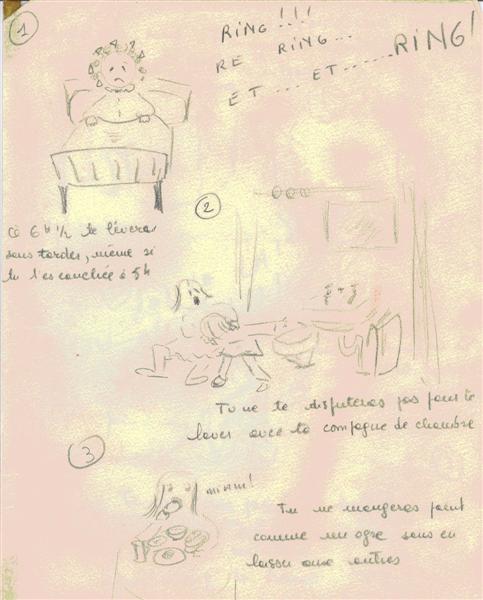 1
RING!!!
RE RING...
ET... ET...... RING!
à 6h 1/2 te lèveras
sans tarder, même si
tu t'es couchée à 5h
2
Tu ne te disputeras pas pour te
laver avec ta compagne de chambre
3
miam!
Tu ne mangeras point
comme un ogre sans en
laisser aux autres